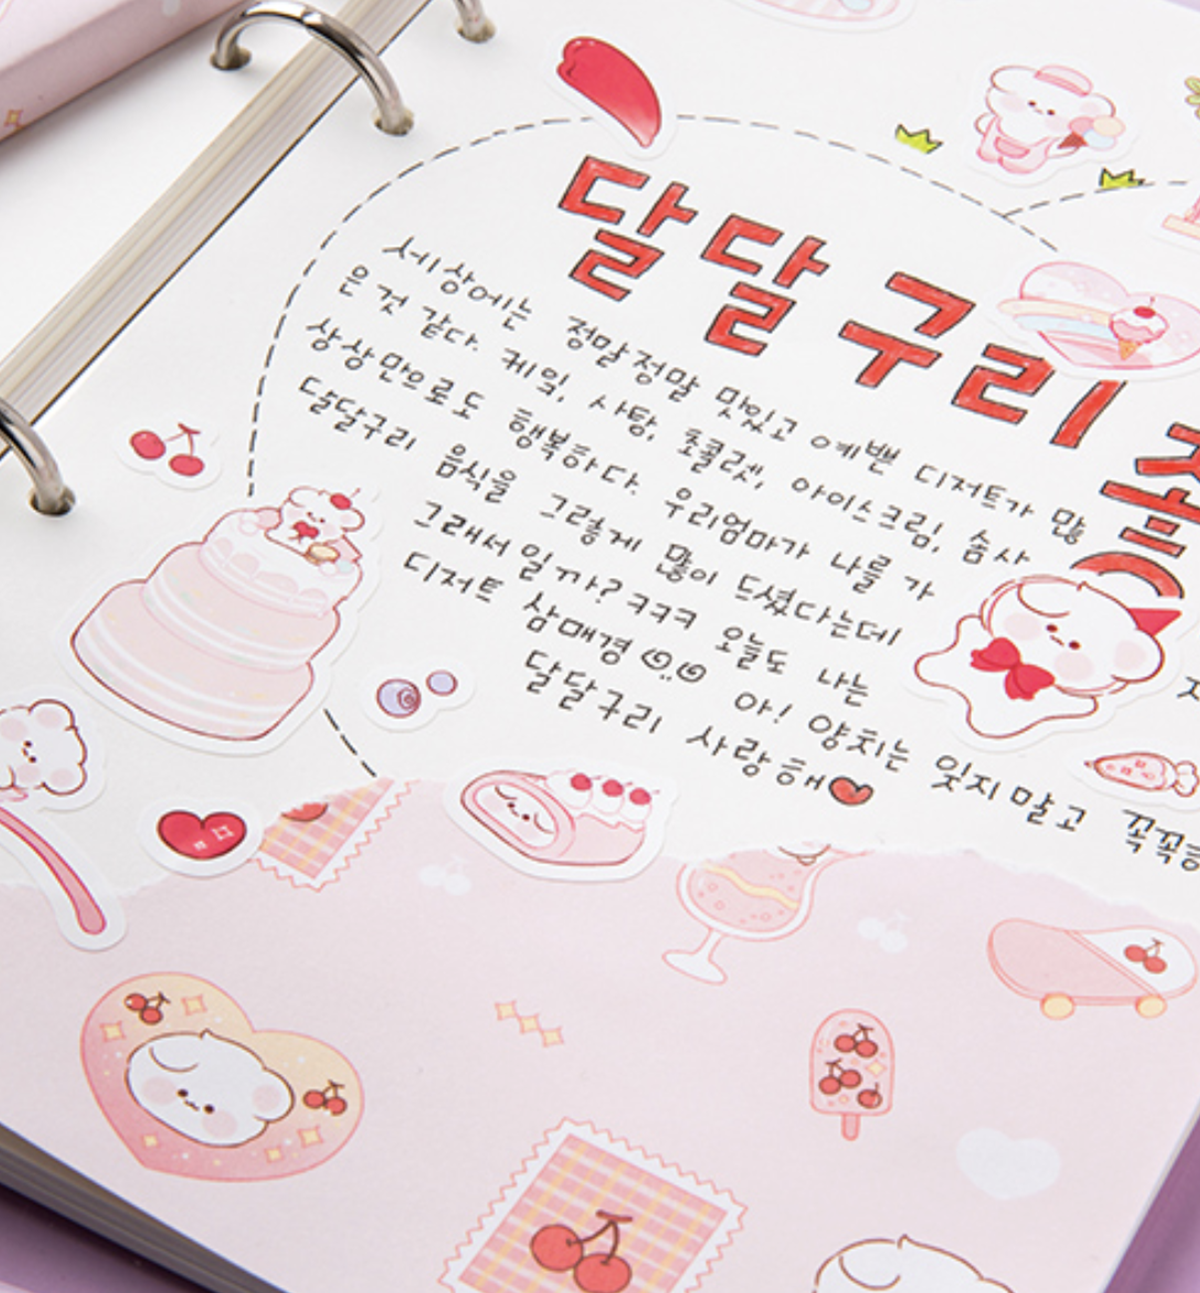 달달구리 좋
세상에는 정말정말 맛있고 예쁜 디저트가 많
은 것 같다. 케잌, 사탕, 초콜렛, 아이스크림, 솜사
상상만으로도 행복하다. 우리엄마가 나를 가
달달구리 음식을 그렇게 많이 드셨다는데
그래서일까? ㅋㅋㅋ 오늘도 나는
디저트 삼매경 아! 양치는 잊지말고 꼭꼭
달달구리 사랑해